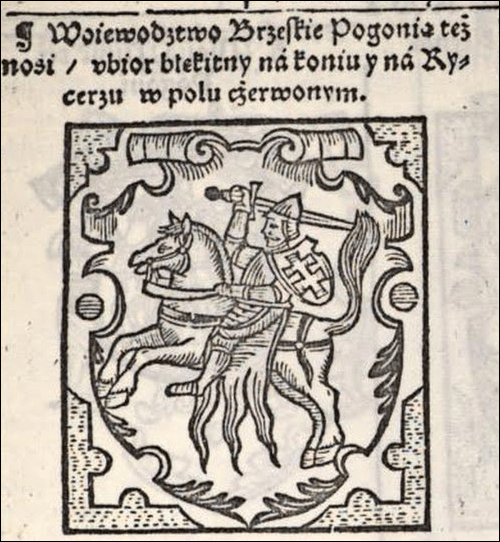 ¶ Woiewodztwo Brzeskie Pogonią też
nosi / vbior błekitny ná koniu y ná Ry⸗
cerzu w polu cżerwonym.